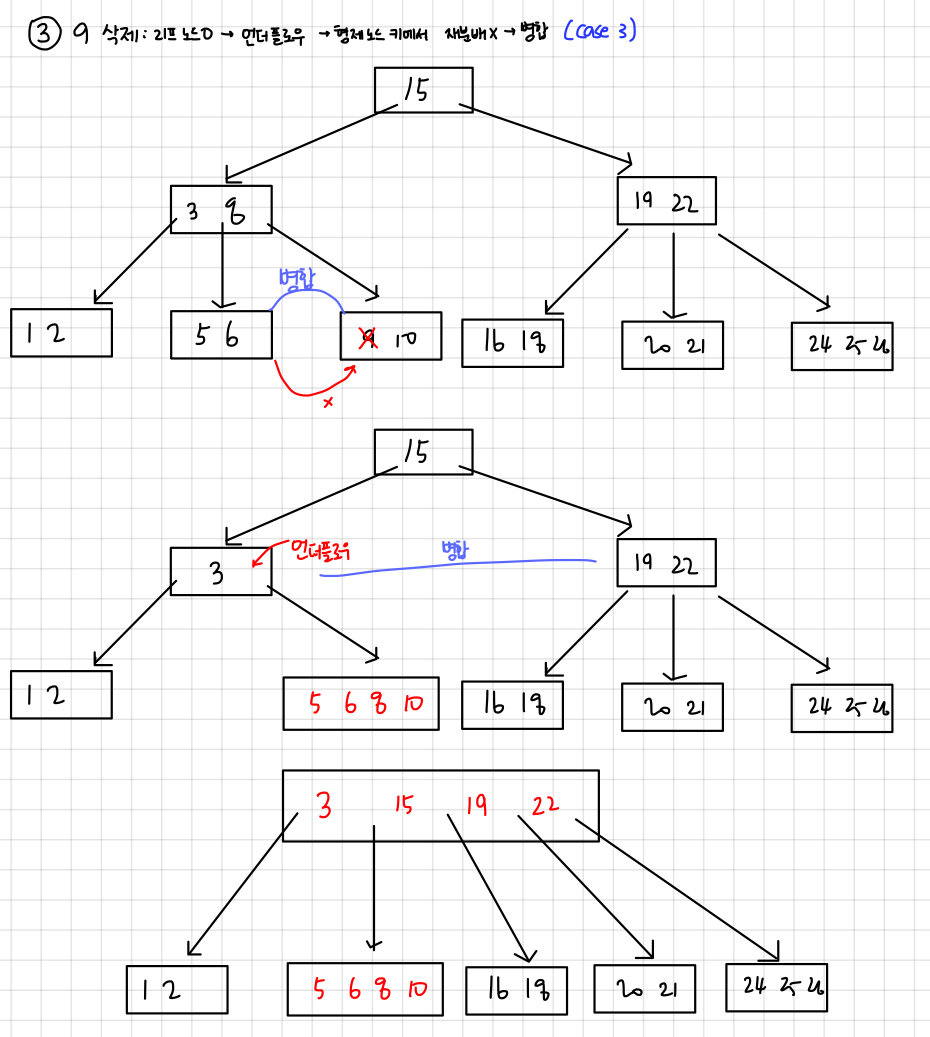 ③ 9 삭제 : 리프 노드 O → 언더플로우 → 형제 노드 키에서 재분배 X → 병합 (case 3)
15
3 8
19 22
병합
1 2
5 6
9 10
16 18
20 21
24 25 26
x
15
3
언더플로우
병합
19 22
1 2
5 6 8 10
16 18
20 21
24 25 26
3 15 19 22
1 2
5 6 8 10
16 18
20 21
24 25 26